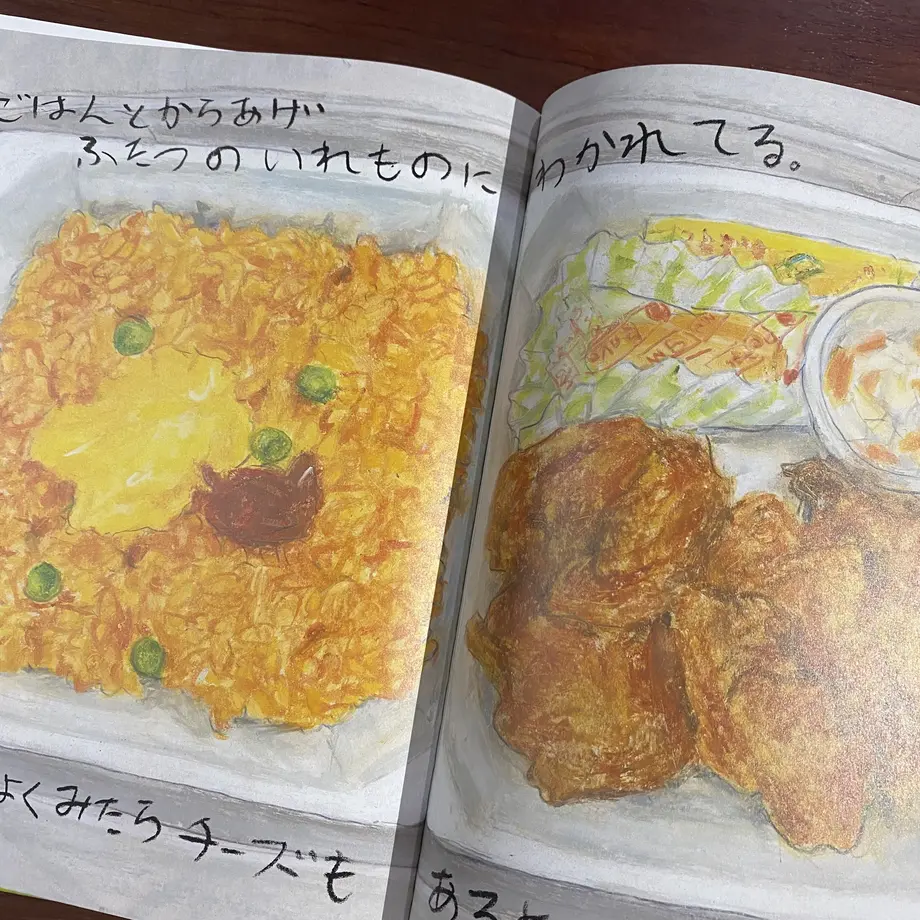 ごはんとからあげ
ふたつのいれものに わかれてる。
よくみたら チーズも あると